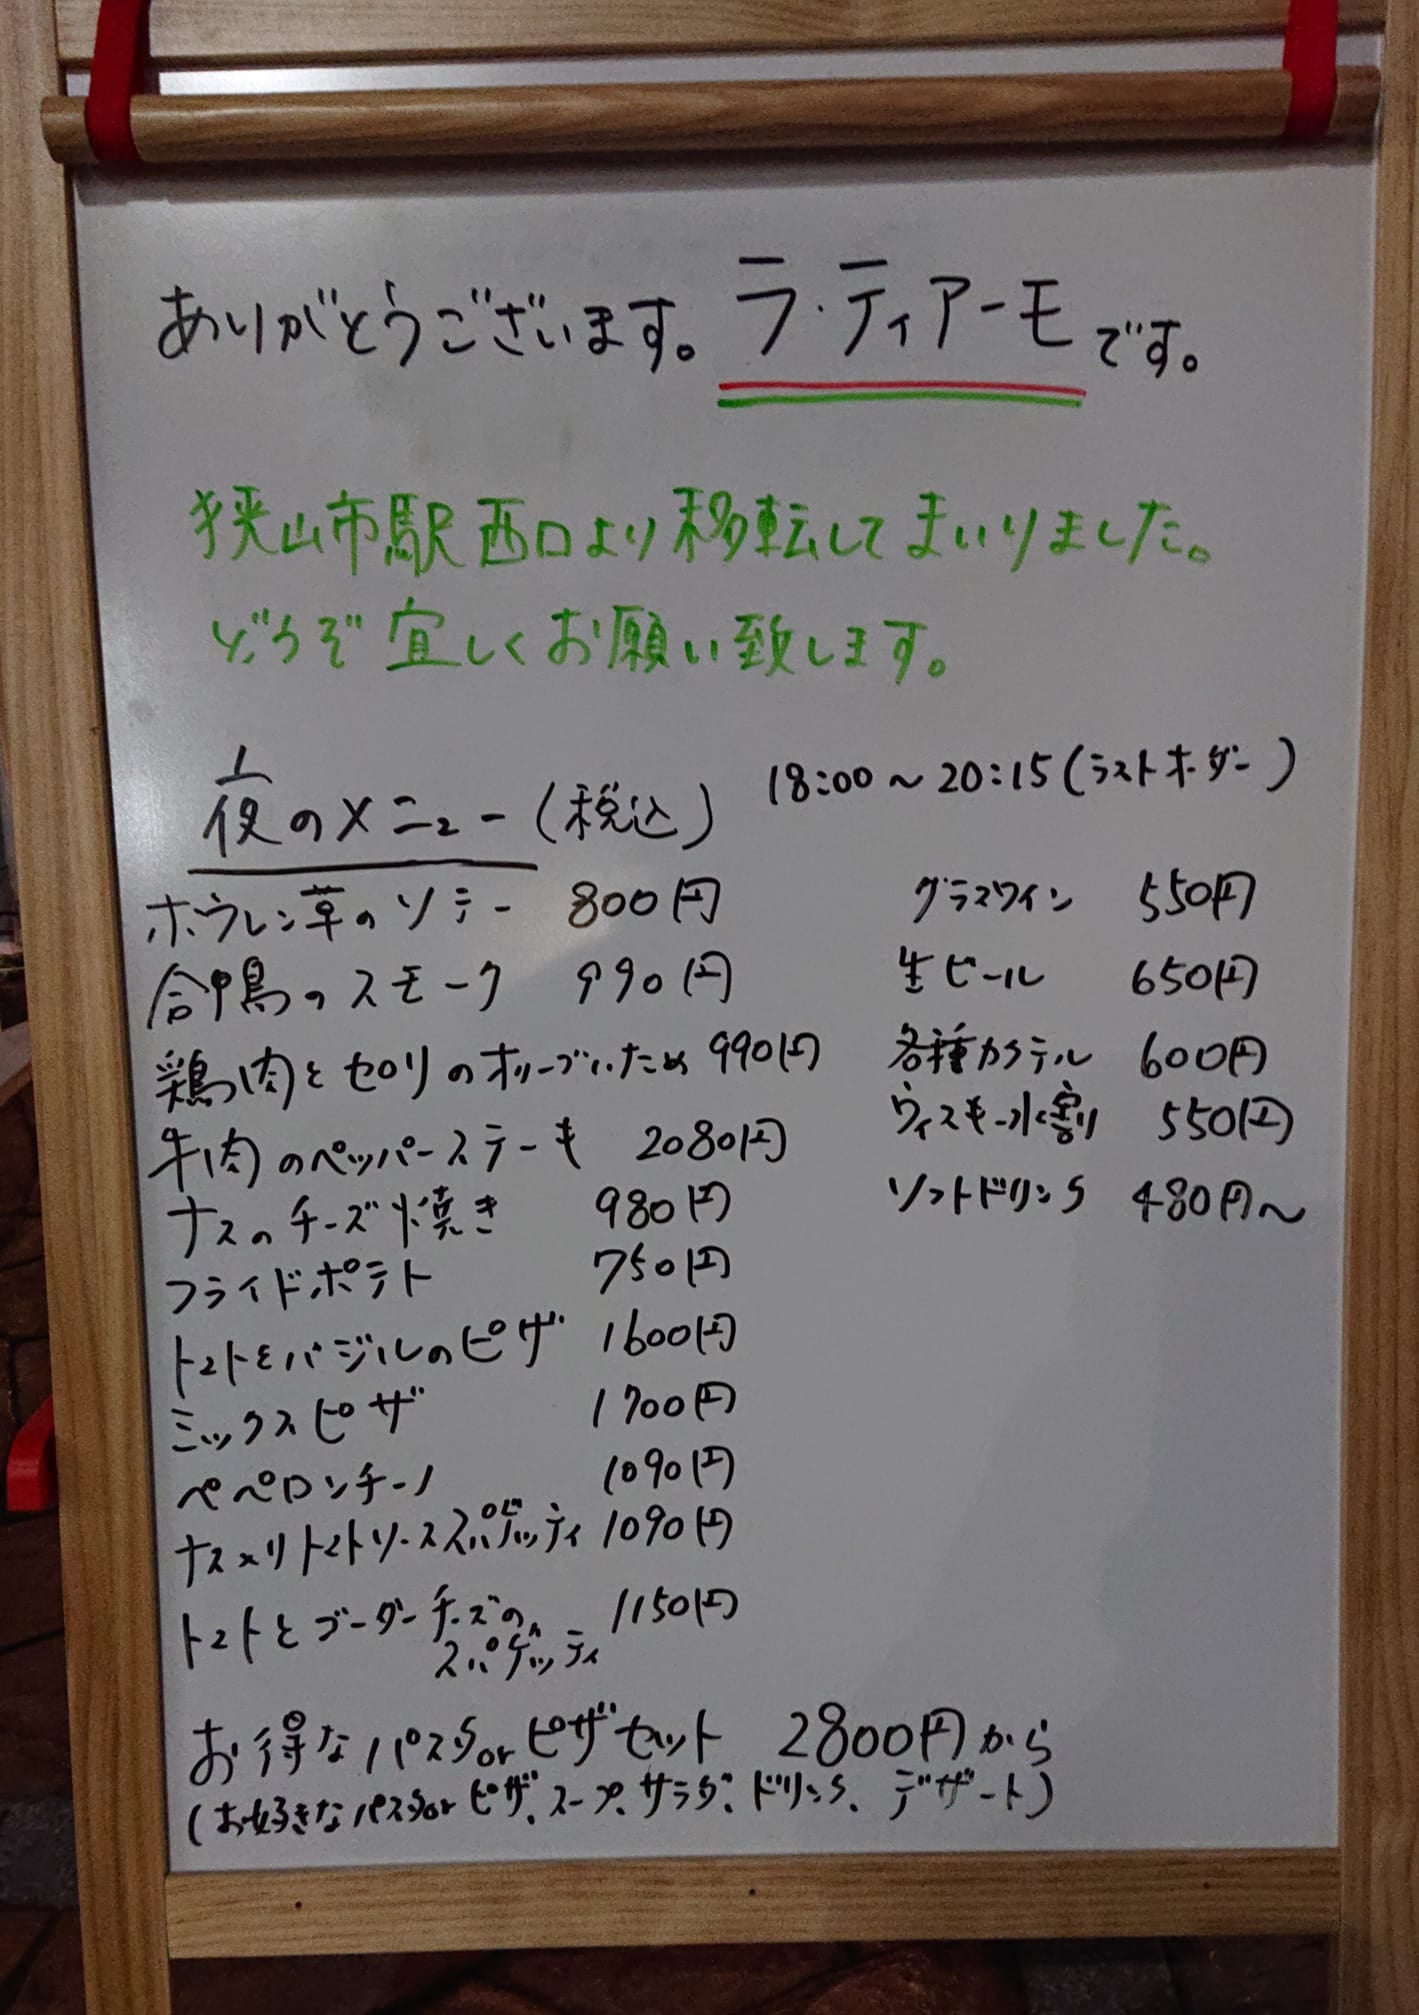 ありがとうございます。ラ・ティアーモです。
狭山市駅西口より移転してまいりました。
どうぞ宜しくお願い致します。
夜のメニュー(税込) 18:00〜20:15(ラストオーダー)
ホウレン草のソテー 800円
合鴨のスモーク 990円
鶏肉とセロリのオリーブいため 990円
牛肉のペッパーステーキ 2080円
ナスのチーズ焼き 980円
フライドポテト 750円
トマトとバジルのピザ 1600円
ミックスピザ 1700円
ペペロンチーノ 1090円
ナス入りトマトソーススパゲッティ 1090円
トマトとゴーダーチーズの 1150円
スパゲッティ
グラスワイン 550円
生ビール 650円
各種カクテル 600円
ウィスキー水割り 550円
ソフトドリンク 480円〜
お得なパスタorピザセット 2800円から
(お好きなパスタorピザ、スープ、サラダ、ドリンク、デザート)